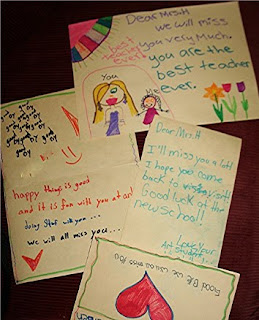 Dear Mrs.H
we will miss
you very Much.
you are the
best teacher
ever.
best
teacher
ever
You
Me
Dear Mrs.H
I'll miss you a lot!
I hope you come
back to visit!
Good luck at the
new school!
Love Your
Art Student
happy things is good
and it is fun with you at art
doing Star with you...
we will all miss you...
Good Bye we will miss you